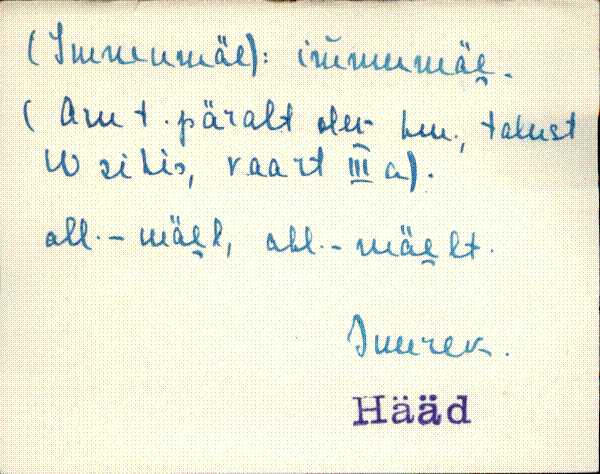 (Immenmäe): immumäe̮.
( Am t. päralt olev hm., talust
W sihis, vaart III a).
all. – mäe̮l, abl. – mäe̮lt.
Suurek.
Hääd